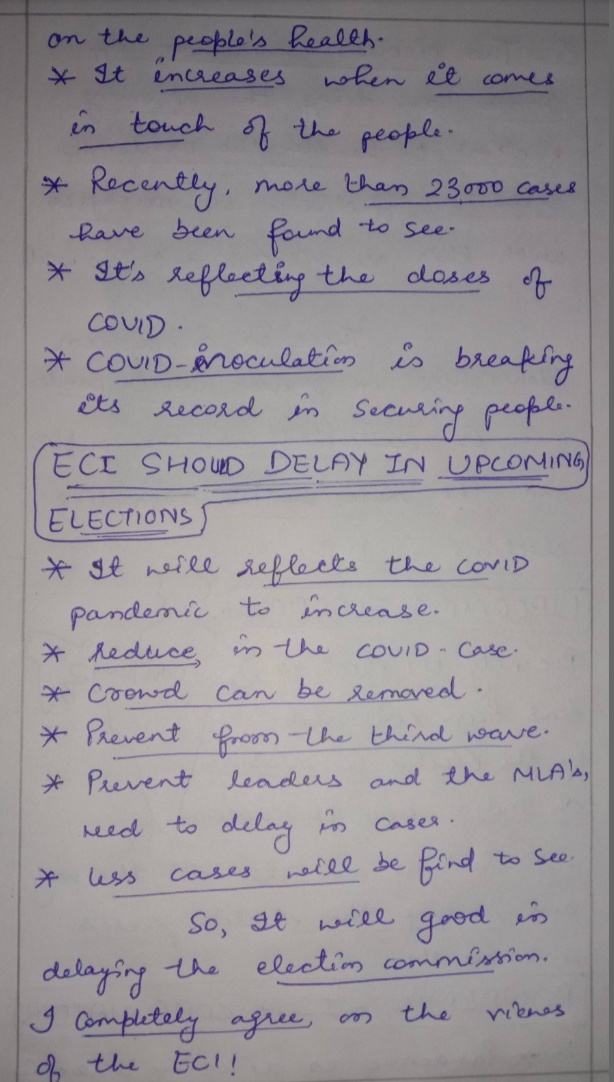 on the people's health.
* It increases when it comes
in touch of the people.
* Recently, more than 23000 cases
have been found to see.
* It's reflecting the doses of
COVID.
* COVID-inoculation is breaking
its record in securing people.
ECI SHOULD DELAY IN UPCOMING
ELECTIONS
* It will reflects the COVID
pandemic to increase.
* Reduce, in the COVID-case.
* Crowd can be removed.
* Prevent from the third wave.
* Prevent leaders and the MLA's,
need to delay in cases.
* Less cases will be find to see.
So, It will good in
delaying the election commission.
I completely agree, on the views
of the ECI!